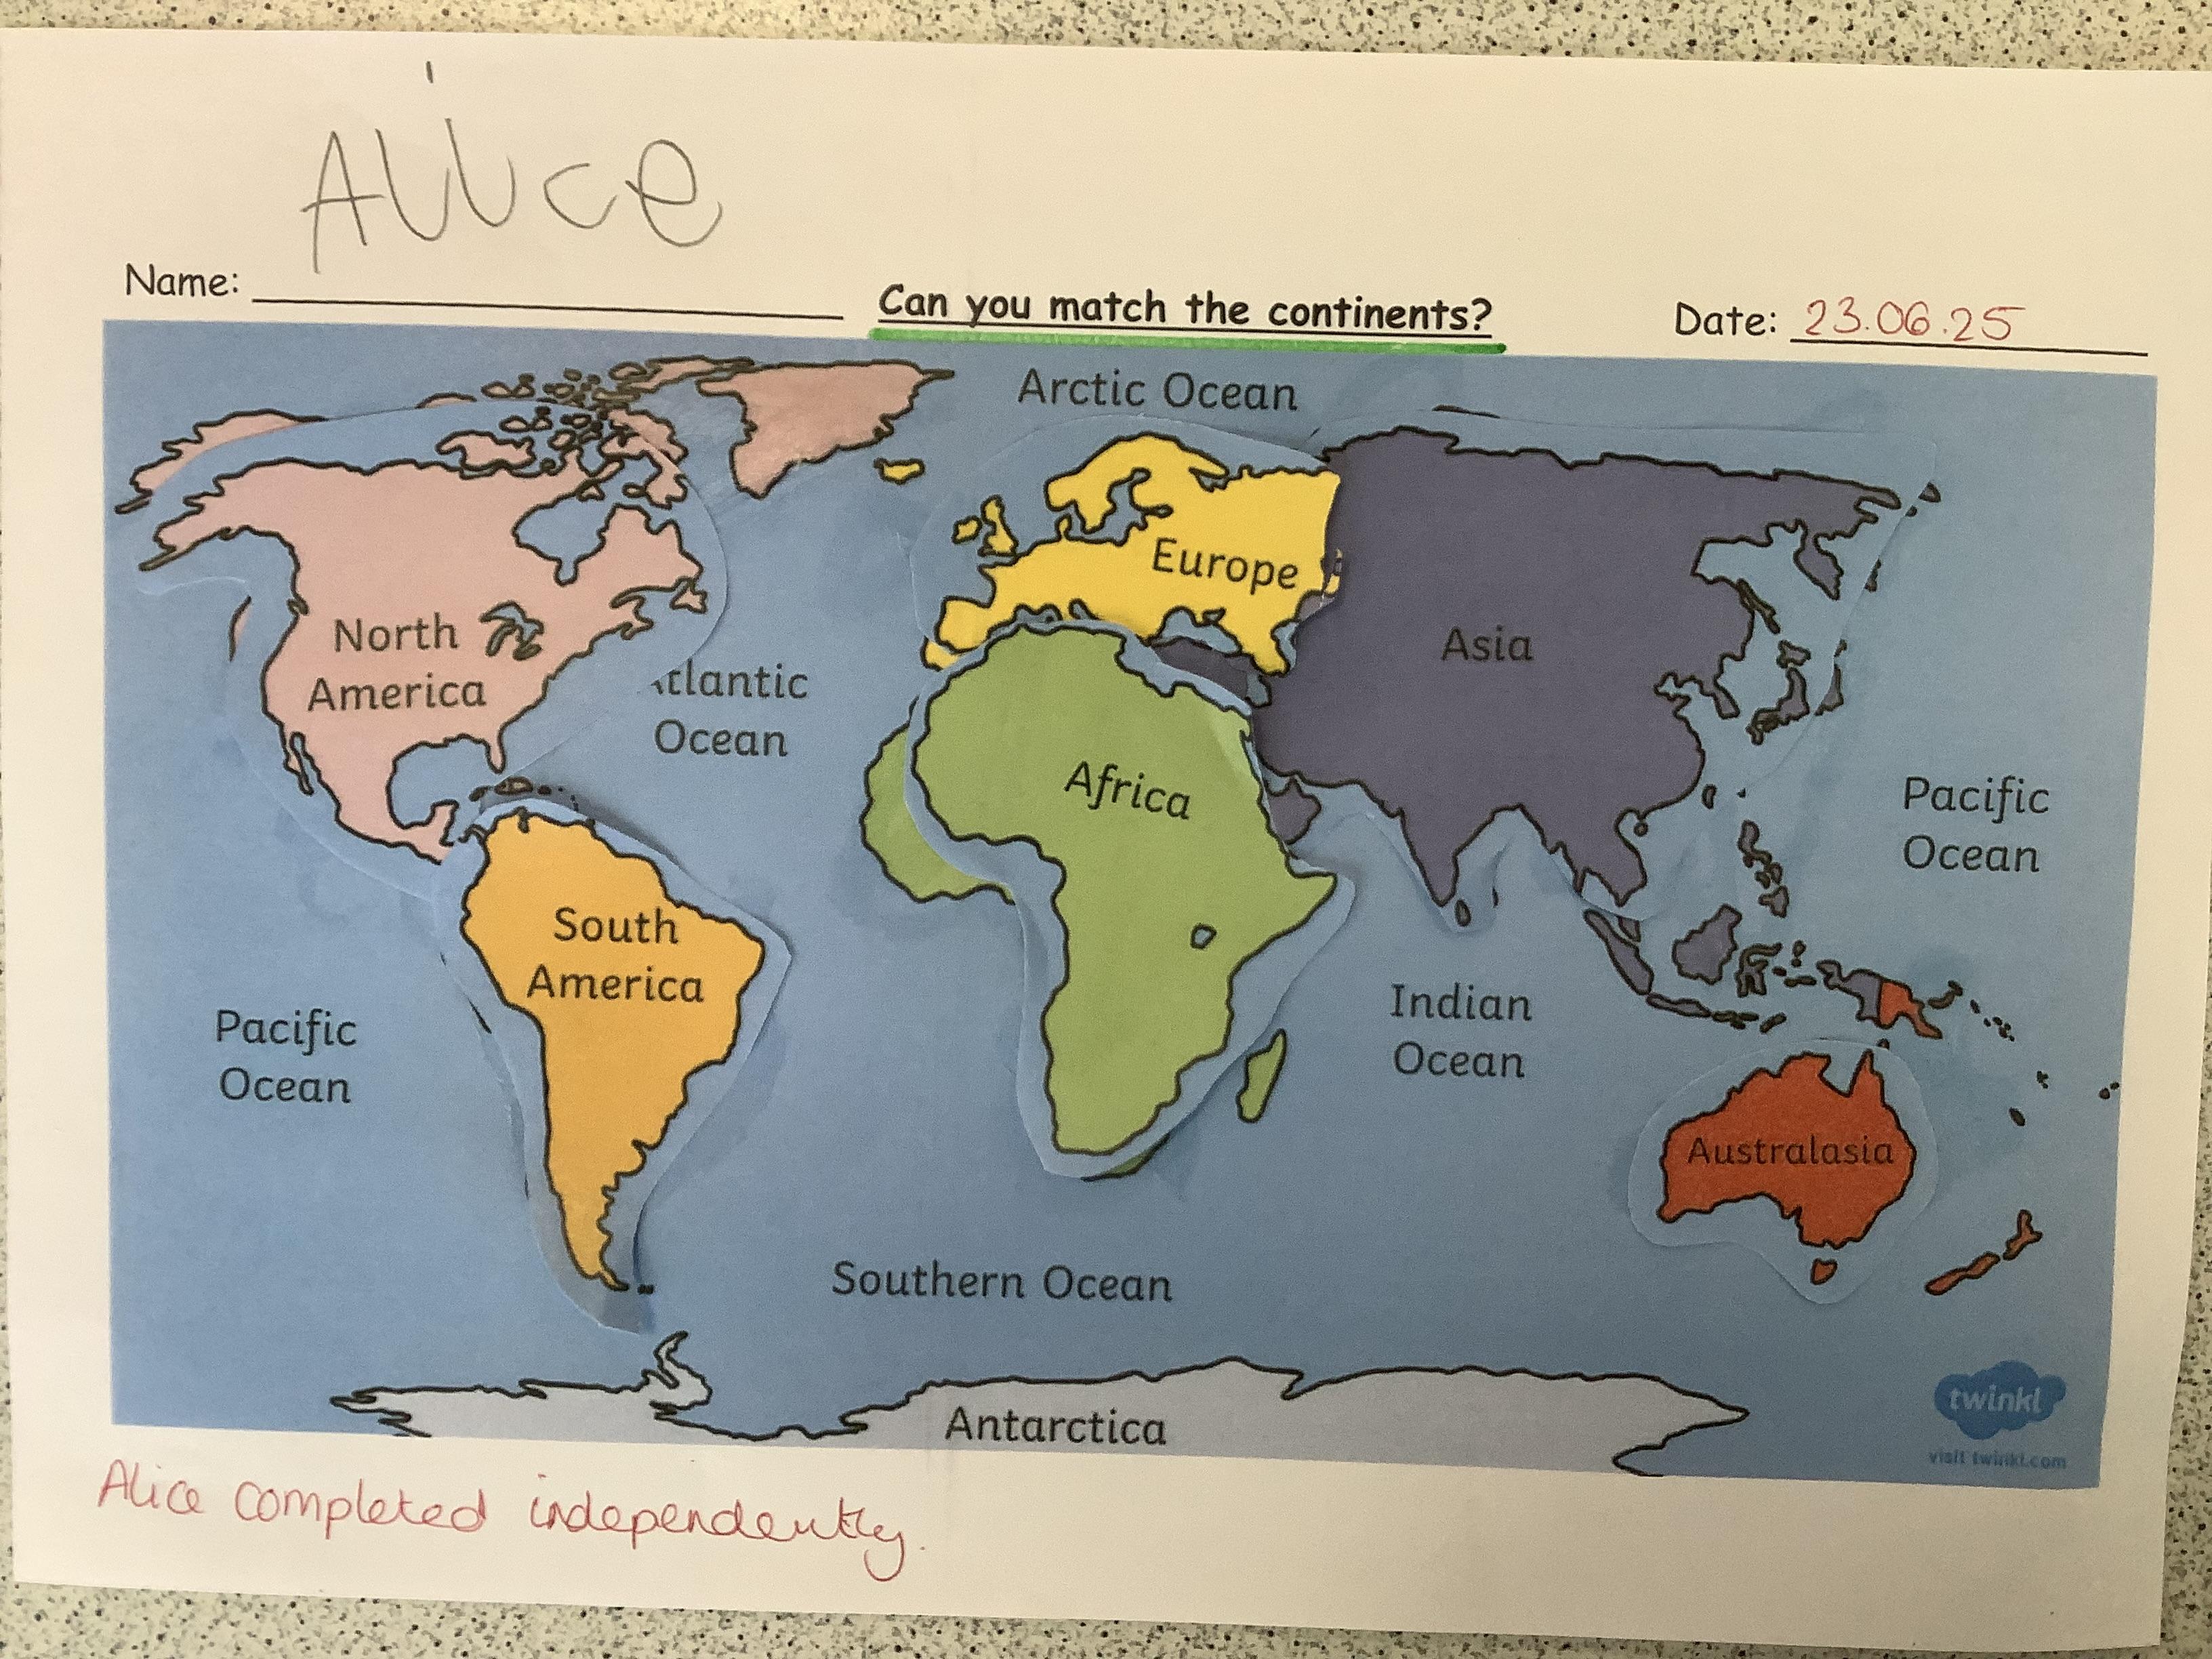 Alice
Name:
Can you match the continents?
Date: 23.06.25
Arctic Ocean
Europe
Asia
North
America
tlantic
Ocean
Africa
Pacific
Ocean
South
America
Indian
Ocean
Pacific
Ocean
Australasia
Southern Ocean
Antarctica
twinkl
visit twinkl.com
Alice completed independently.